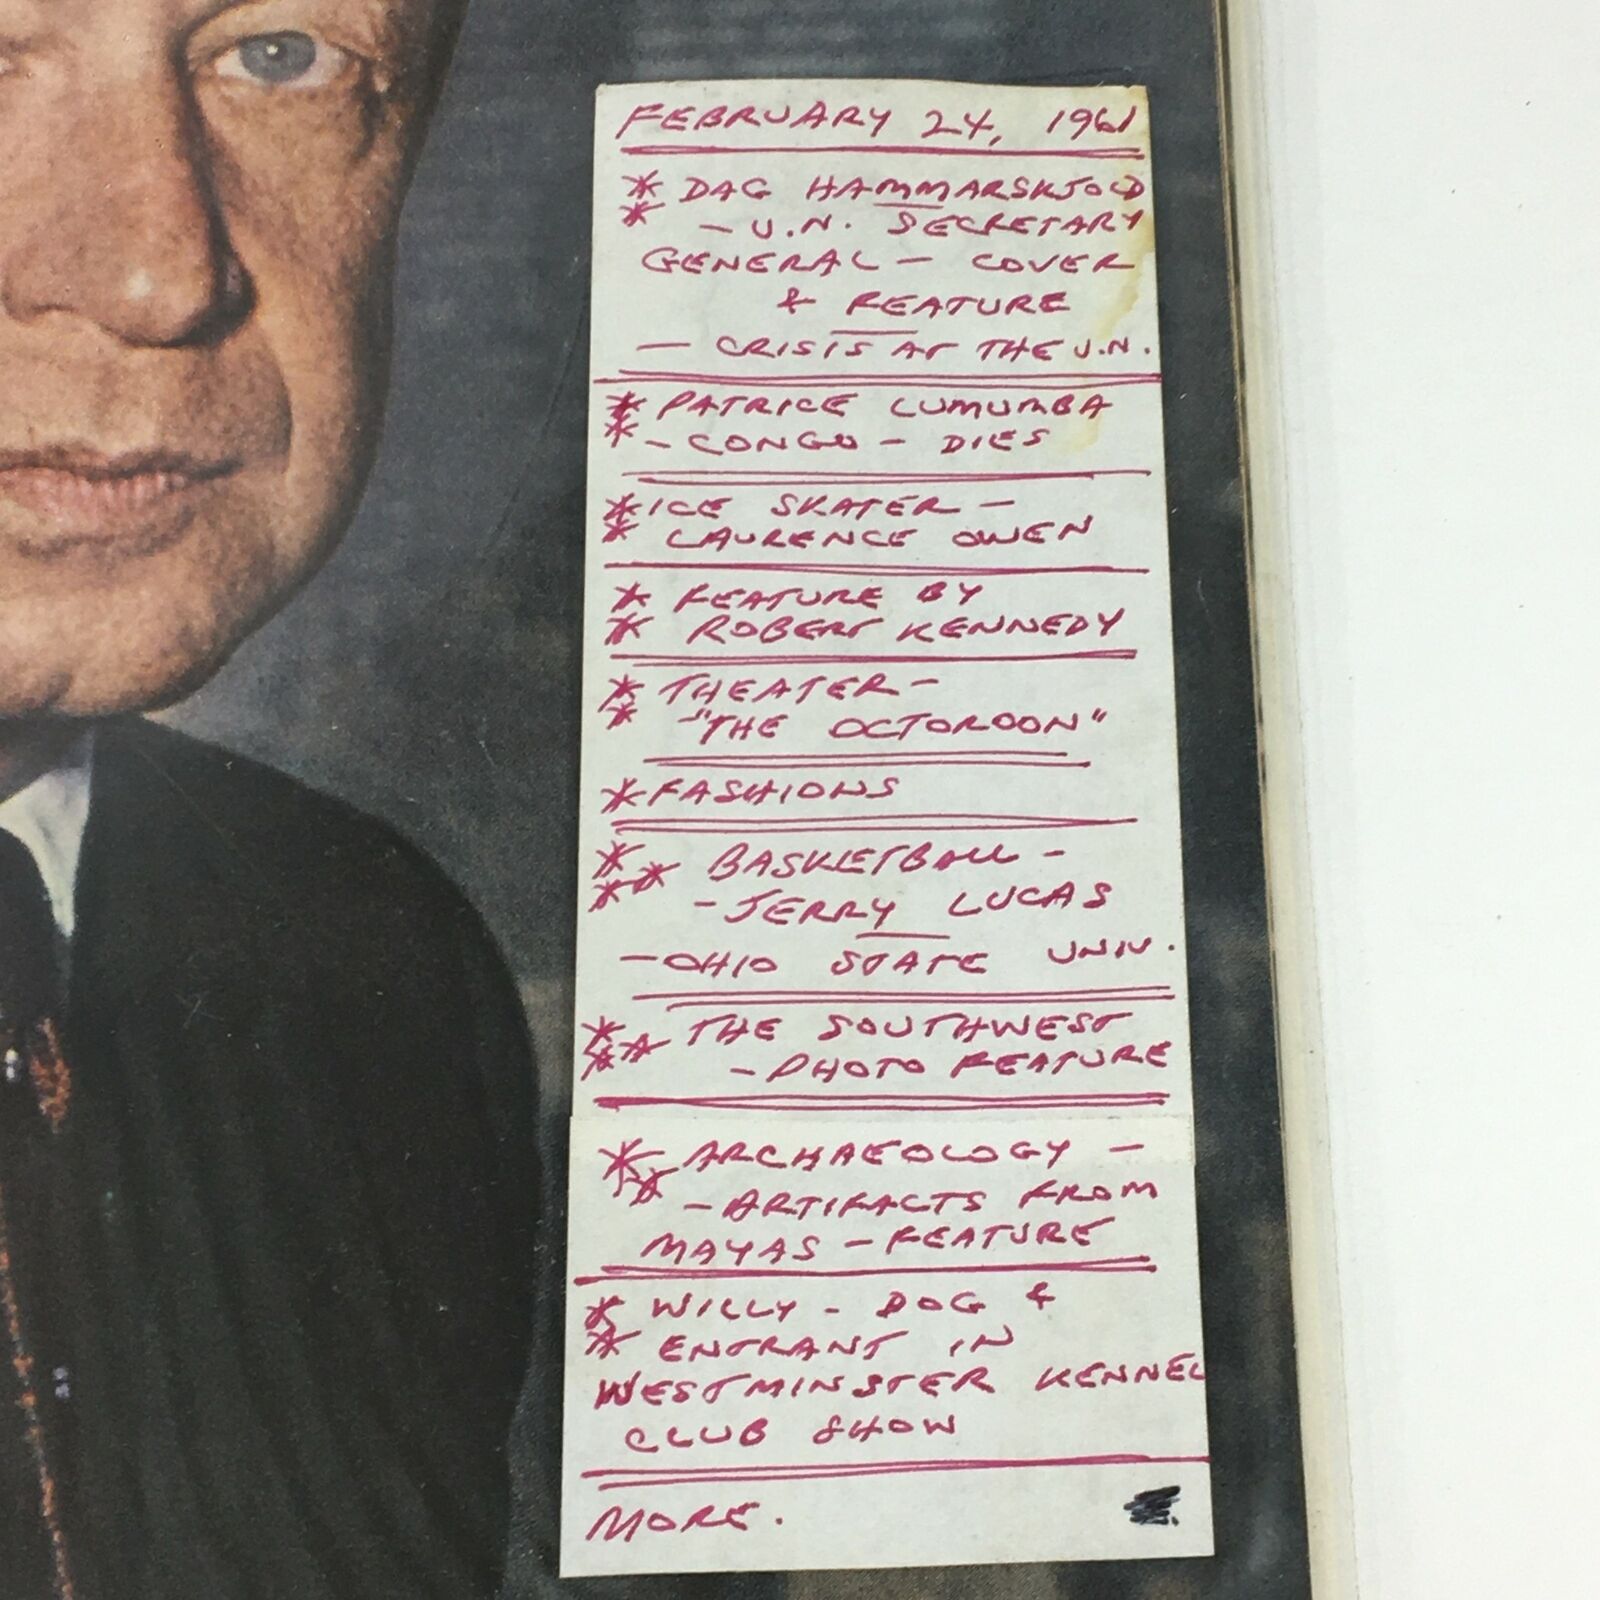 FEBRUARY 24, 1961
* DAG HAMMARSKJOLD
* - U.N. SECRETARY
GENERAL - COVER
& FEATURE
- CRISIS AT THE U.N.
* PATRICE LUMUMBA
* - CONGO - DIES
* ICE SKATER -
* LAURENCE OWEN
* FEATURE BY
* ROBERT KENNEDY
* THEATER -
* "THE OCTOROON"
* FASHIONS
* BASKETBALL -
** - JERRY LUCAS
- OHIO STATE UNIV.
* THE SOUTHWEST
** - PHOTO FEATURE
* ARCHAEOLOGY -
** - ARTIFACTS FROM
MAYAS - FEATURE
* WILLY - DOG &
* ENTRANT IN
WESTMINSTER KENNEL
CLUB SHOW
MORE.